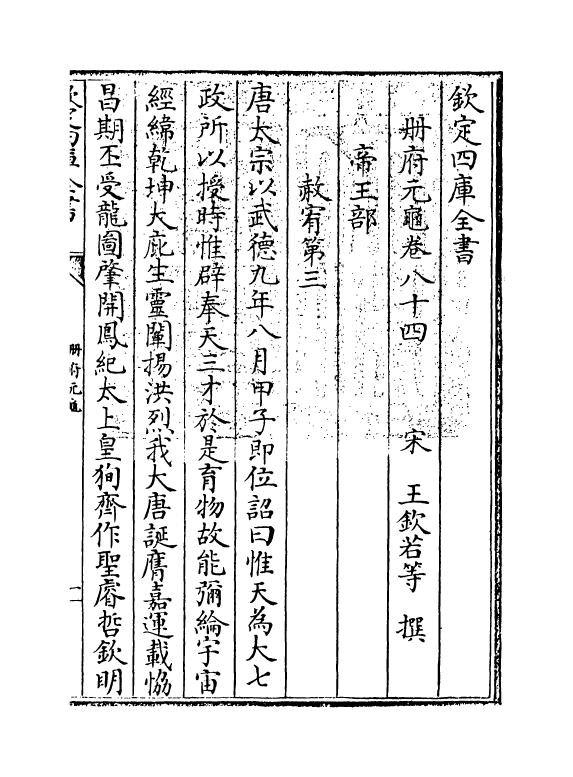 欽定四庫全書
册府元龜卷八十四　宋　王欽若等　撰
帝王部
赦宥第三
唐太宗以武德九年八月甲子即位詔曰惟天為大七
政所以授時惟辟奉天三才於是育物故能彌綸宇宙
經緯乾坤大庇生靈闡揚洪烈我大唐誕膺嘉運載恊
昌期丕受龍圖肇開鳳紀太上皇狥齊作聖睿哲欽明
册府元龜
一